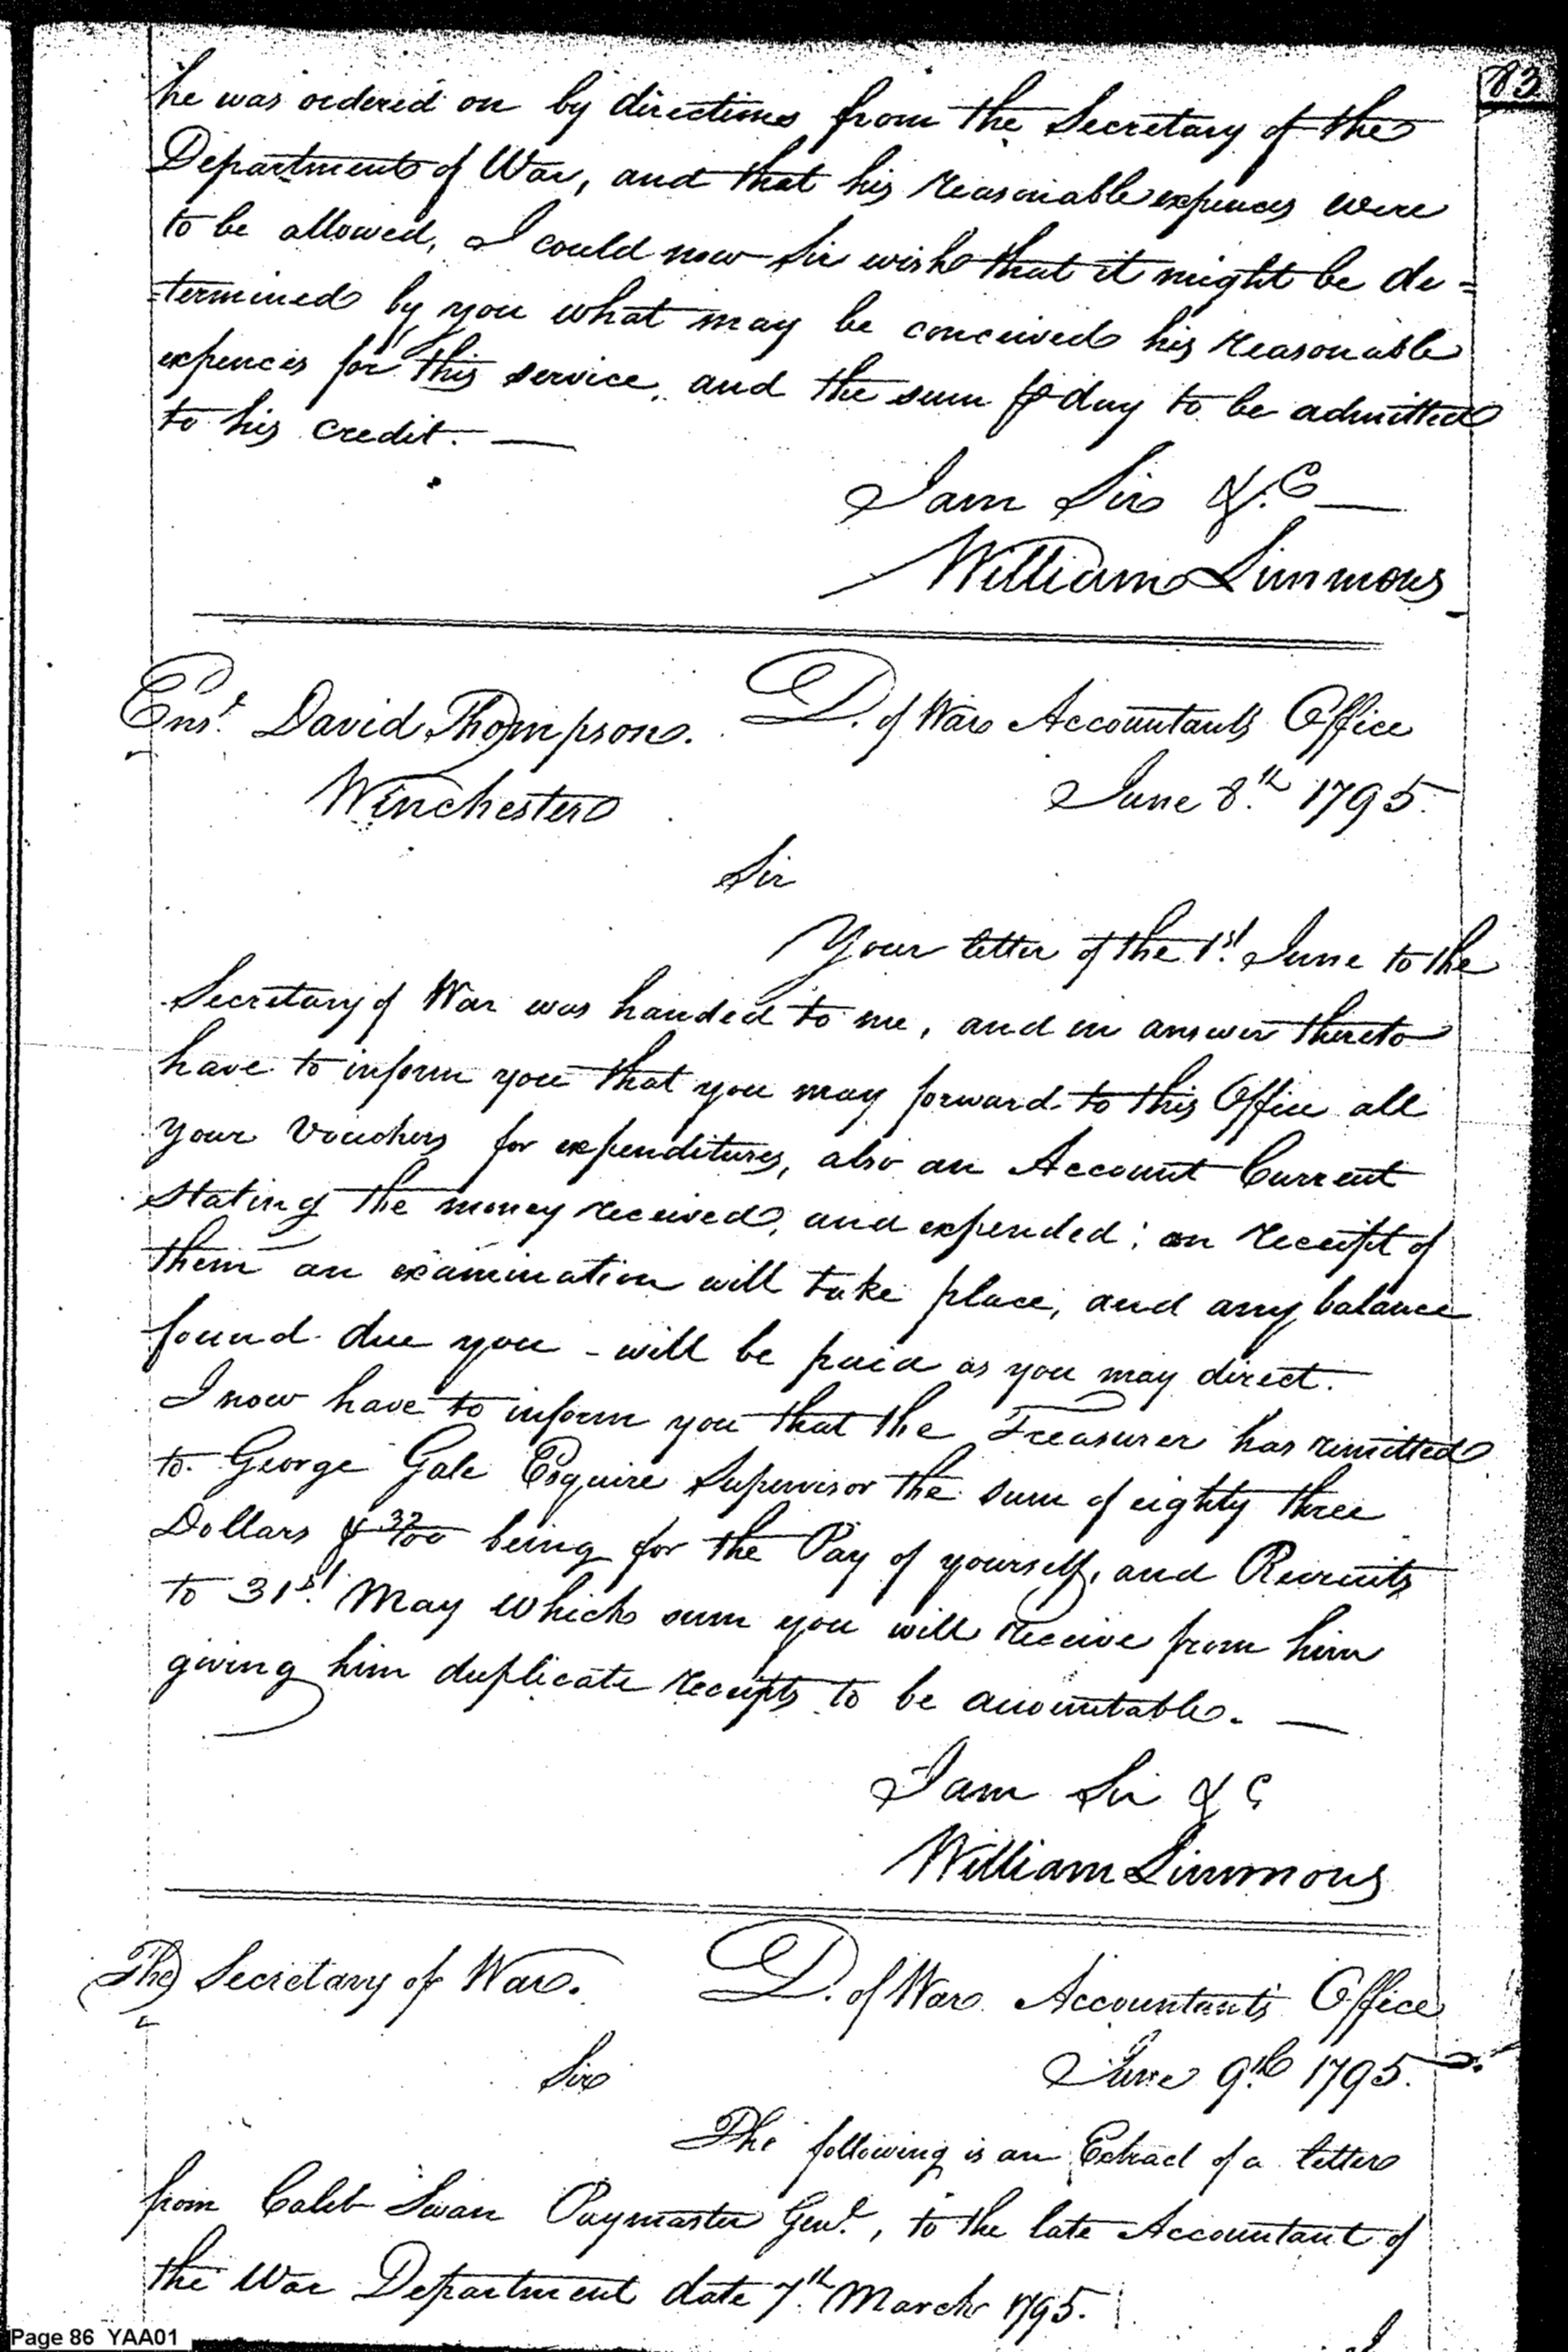 83
he was ordered on by directions from the Secretary of the
Department of War, and that his reasonable expences were
to be allowed, I could now Sir wish that it might be de=
=termined by you what may be conceived his reasonable
expences for this service, and the sum ⅌ day to be admitted
to his credit. —
I am Sir &.C —
William Simmons
Ens.r David Thompson. D. of War Accountants Office
Winchester June 8.th 1795.
Sir
Your letter of the 1.st June to the
Secretary of War was handed to me, and in answer thereto
have to inform you that you may forward to this Office all
your Vouchers for expenditures, also an Account Current
stating the money received, and expended; on receipt of
them an examination will take place, and any balance
found due you - will be paid as you may direct.
I now have to inform you that the Treasurer has remitted
to George Gale Esquire Supervisor the sum of eighty three
Dollars & 32/100 being for the Pay of yourself, and Recruits
to 31.st May which sum you will receive from him
giving him duplicate receipts to be accountable. —
I am Sir & C
William Simmons
The Secretary of War. D. of War Accountants Office
Sir June 9.th 1795.
The following is an Extract of a letter
from Caleb Swan Paymaster Genl., to the late Accountant of
the War Department date 7.th March 1795.
Page 86 YAA01